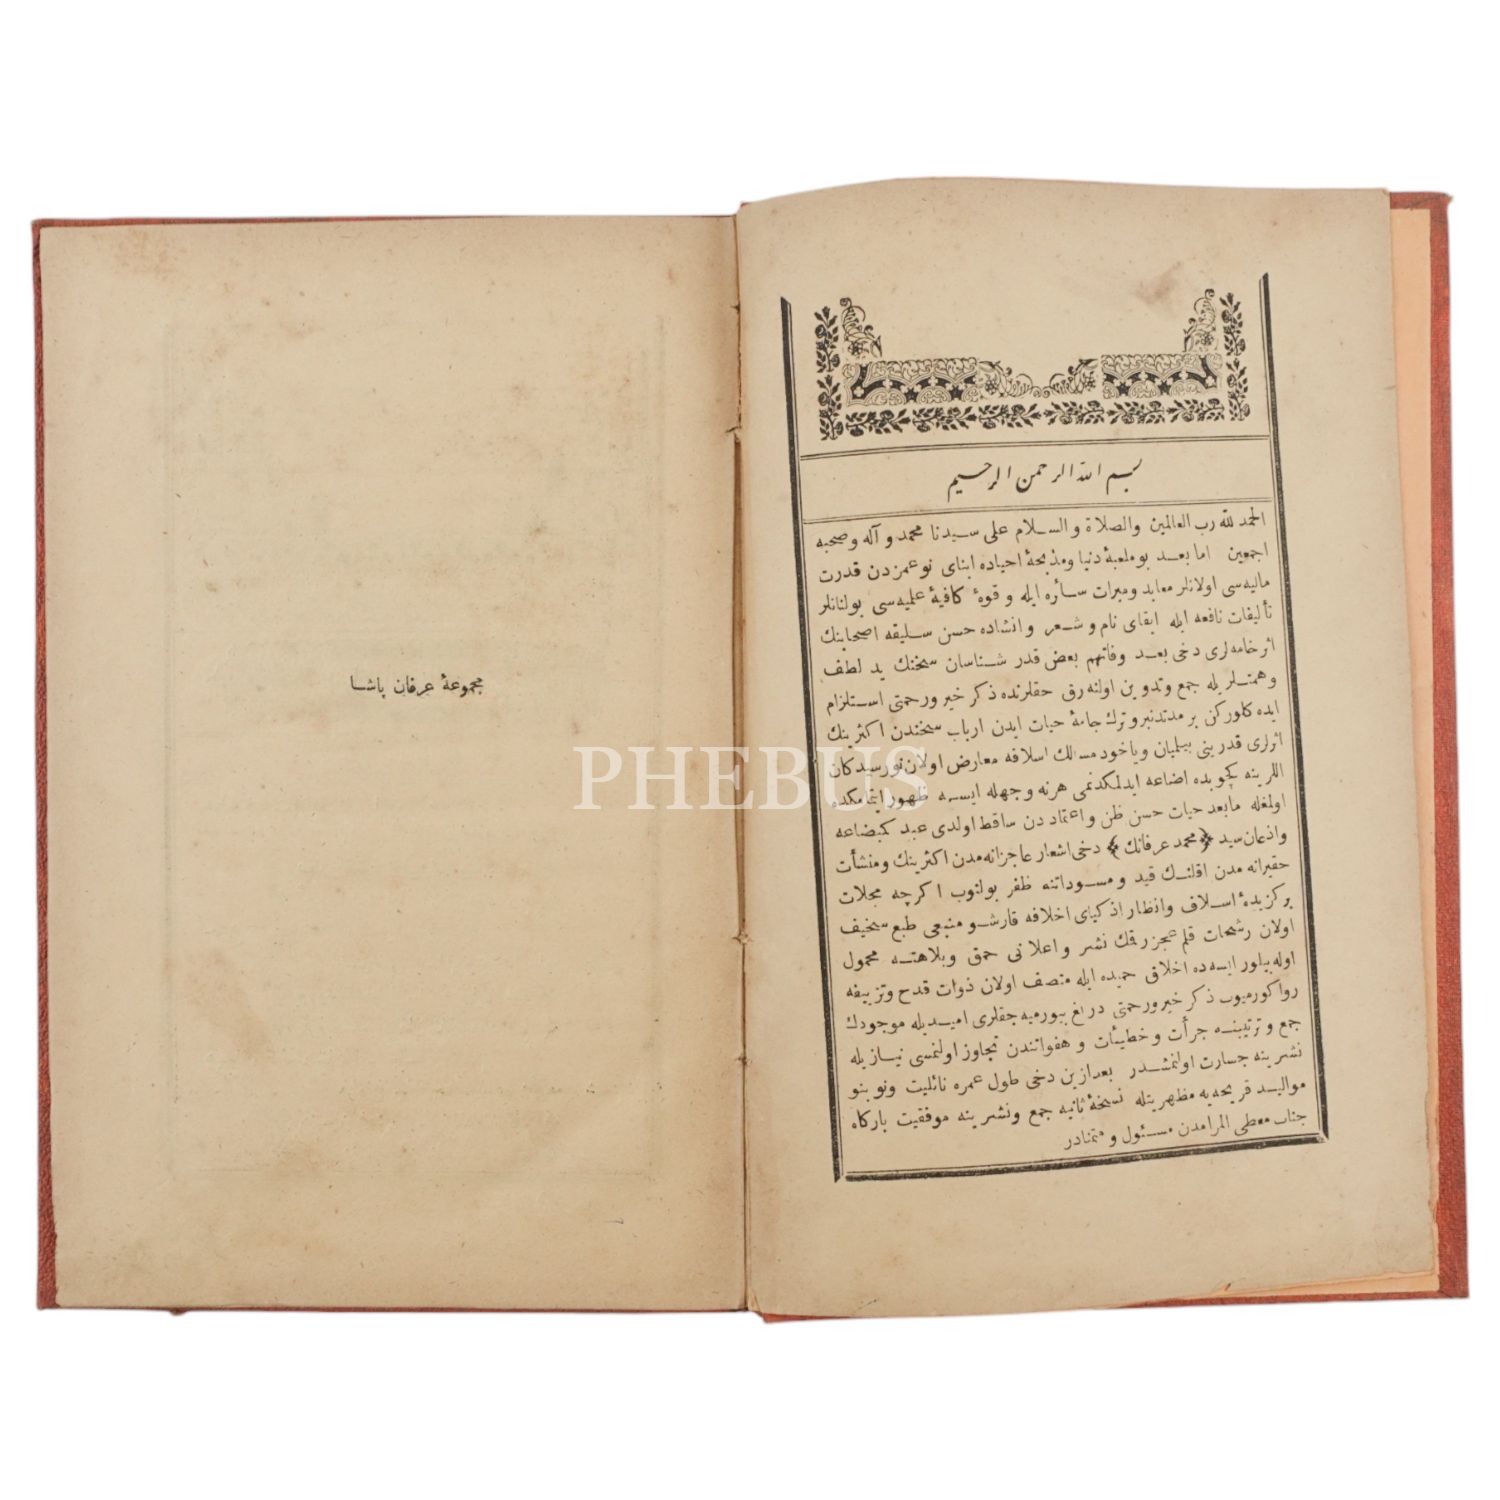 مجموعهٔ عرفان پاشا
بسم الله الرحمن الرحيم
الحمد لله رب العالمين والصلاة والسلام على سيدنا محمد و آله وصحبه
اجمعين اما بعد بو ملعبهٔ دنيا ومذبحهٔ احياده ابناى نوعمزدن قدرت
ماليه‌سى اولانلر معابد ومبرات سائره ايله و قوهٔ كافيهٔ علميه‌سى بولنانلر
تأليفات نافعه ايله ابقاى نام و شعر و انشاده حسن سليقه اصحابنك
اثر خامه‌لرى دخى بعد وفاتهم بعض قدر شناسان سخنك يد لطف
وهمتلريله جمع وتدوين اولنه‌رق حقلرنده ذكر خير ورحمتى استلزام
ايده كلوركن بر مدتدنبرو ترك جامهٔ حيات ايدن ارباب سخندن اكثرينك
اثرلرى قدرينى بيلميان وياخود مسالك اسلافه معارض اولان نورسيدكان
اللرينه كچوبده اضاعه ايدلمكدنمى هرنه وجهله ايسه ظهور ايتمامكده
اولمغله مابعد حيات حسن ظن واعتماددن ساقط اولدى عبد كمبضاعه
واذعان سيد ﴿محمد عرفانك﴾ دخى اشعار عاجزانه‌مدن اكثرينك ومنشأت
حقيرانه‌مدن اقلنك قيد و مسوداتنه ظفر بولنوب اكرچه مجلات
بركزيدهٔ اسلاف وانظار اذكياى اخلافه قارشو منبعى طبع سخيف
اولان رشحات قلم عجز رقمك نشر و اعلانى حمق وبلاهته محمول
اوله‌بيلور ايسه‌ده اخلاق حميده ايله متصف اولان ذوات قدح وتزييفه
روا كورميوب ذكر خير ورحمتى دريغ بيورميه‌جقلرى اميديله موجودك
جمع و ترتيبنه جرأت وخطيئات و هفواتندن تجاوز اولنمسى نيازيله
نشرينه جسارت اولنمشدر بعدازين دخى طول عمره نائليت ونوبنو
مواليد قريحه‌يه مظهريتله نسخهٔ ثانيه جمع ونشرينه موفقيت باركاه
جناب معطى المرامدن مسئول و متمنادر
PHEBUS